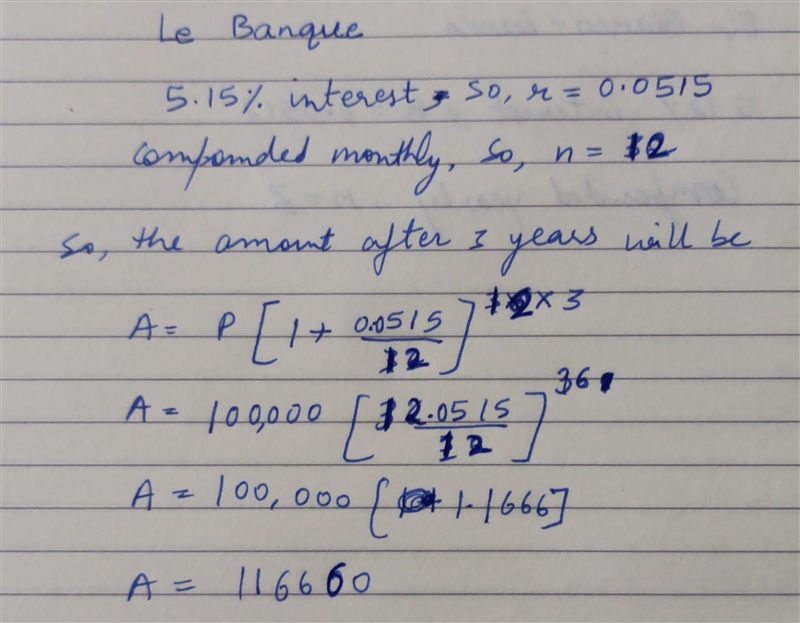 Le Banque
5.15% interest, so, r = 0.0515
compounded monthly, so, n = 12
So, the amount after 3 years will be
A = P [1 + 0.0515/12]^12×3
A = 100,000 [12.0515/12]^36
A = 100,000 [1.1666]
A = 116660